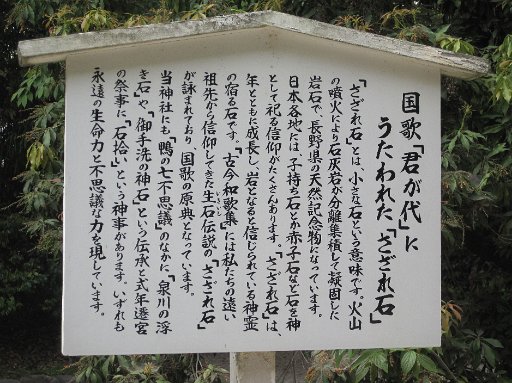 国歌「君が代」に
うたわれた「さざれ石」
「さざれ石」とは、小さな石という意味です。火山
の噴火により石灰岩が分離集積して凝固した
岩石で、長野県の天然記念物になっています。
日本各地には、子持ち石とか赤子石など石を神
として祀る信仰がたくさんあります。さざれ石」は、
年とともに成長し、岩となると信じられている神霊
の宿る石です。「古今和歌集」には私たちの遠い
祖先から信仰してきた生石伝説の「さざれ石」
が詠まれており、国歌の原典となっています。
当神社にも「鴨の七不思議」のなかに、「泉川の浮
き石」や、「御手洗の神石」という伝承と式年遷宮
の祭事に「石拾」いという神事があります。いずれも
永遠の生命力と不思議な力を現しています。